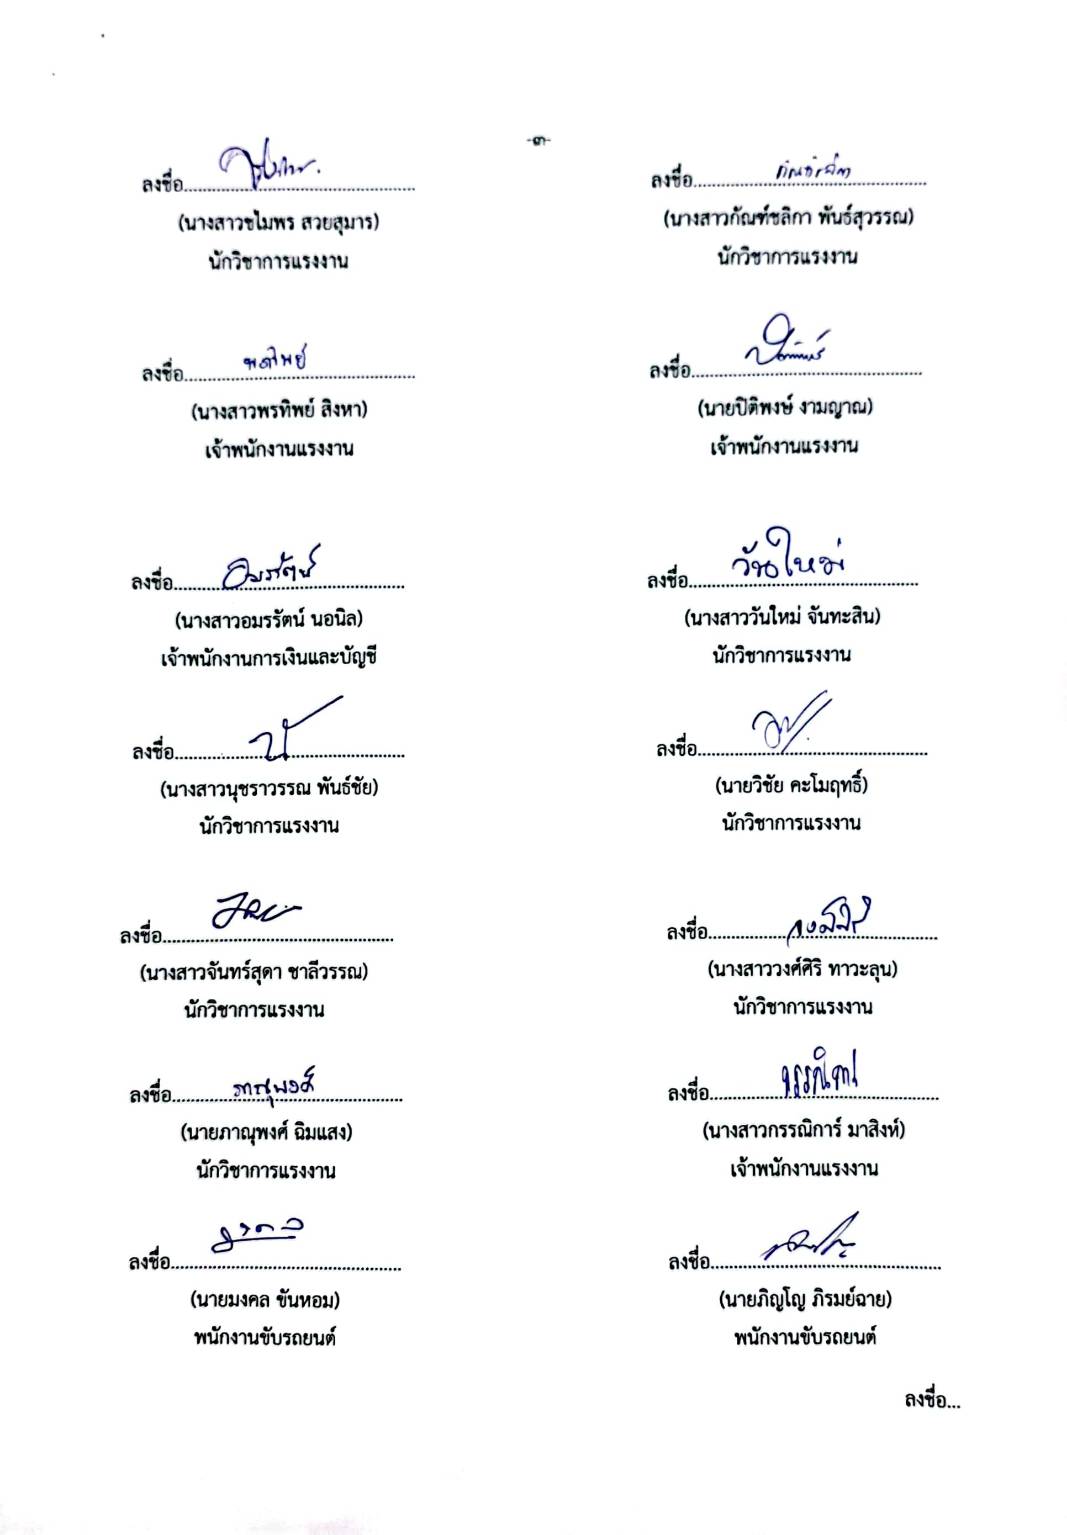 -๓-
ลงชื่อ........................................... ลงชื่อ...........................................
(นางสาวชไมพร สวยสุมาร) (นางสาวกัณฑ์ชลิกา พันธ์สุวรรณ)
นักวิชาการแรงงาน นักวิชาการแรงงาน
ลงชื่อ...พรทิพย์... ลงชื่อ...........................................
(นางสาวพรทิพย์ สิงหา) (นายปิติพงษ์ งามญาณ)
เจ้าพนักงานแรงงาน เจ้าพนักงานแรงงาน
ลงชื่อ...อมรรัตน์... ลงชื่อ...วันใหม่...
(นางสาวอมรรัตน์ นอนิล) (นางสาววันใหม่ จันทะสิน)
เจ้าพนักงานการเงินและบัญชี นักวิชาการแรงงาน
ลงชื่อ........................................... ลงชื่อ...........................................
(นางสาวนุชราวรรณ พันธ์ชัย) (นายวิชัย คะโมฤทธิ์)
นักวิชาการแรงงาน นักวิชาการแรงงาน
ลงชื่อ........................................... ลงชื่อ...........................................
(นางสาวจันทร์สุดา ชาลีวรรณ) (นางสาววงศ์ศิริ ทาวะลุน)
นักวิชาการแรงงาน นักวิชาการแรงงาน
ลงชื่อ...ภาณุพงศ์... ลงชื่อ...........................................
(นายภาณุพงศ์ ฉิมแสง) (นางสาวกรรณิการ์ มาสิงห์)
นักวิชาการแรงงาน เจ้าพนักงานแรงงาน
ลงชื่อ........................................... ลงชื่อ...........................................
(นายมงคล ขันหอม) (นายภิญโญ ภิรมย์ฉาย)
พนักงานขับรถยนต์ พนักงานขับรถยนต์
ลงชื่อ...